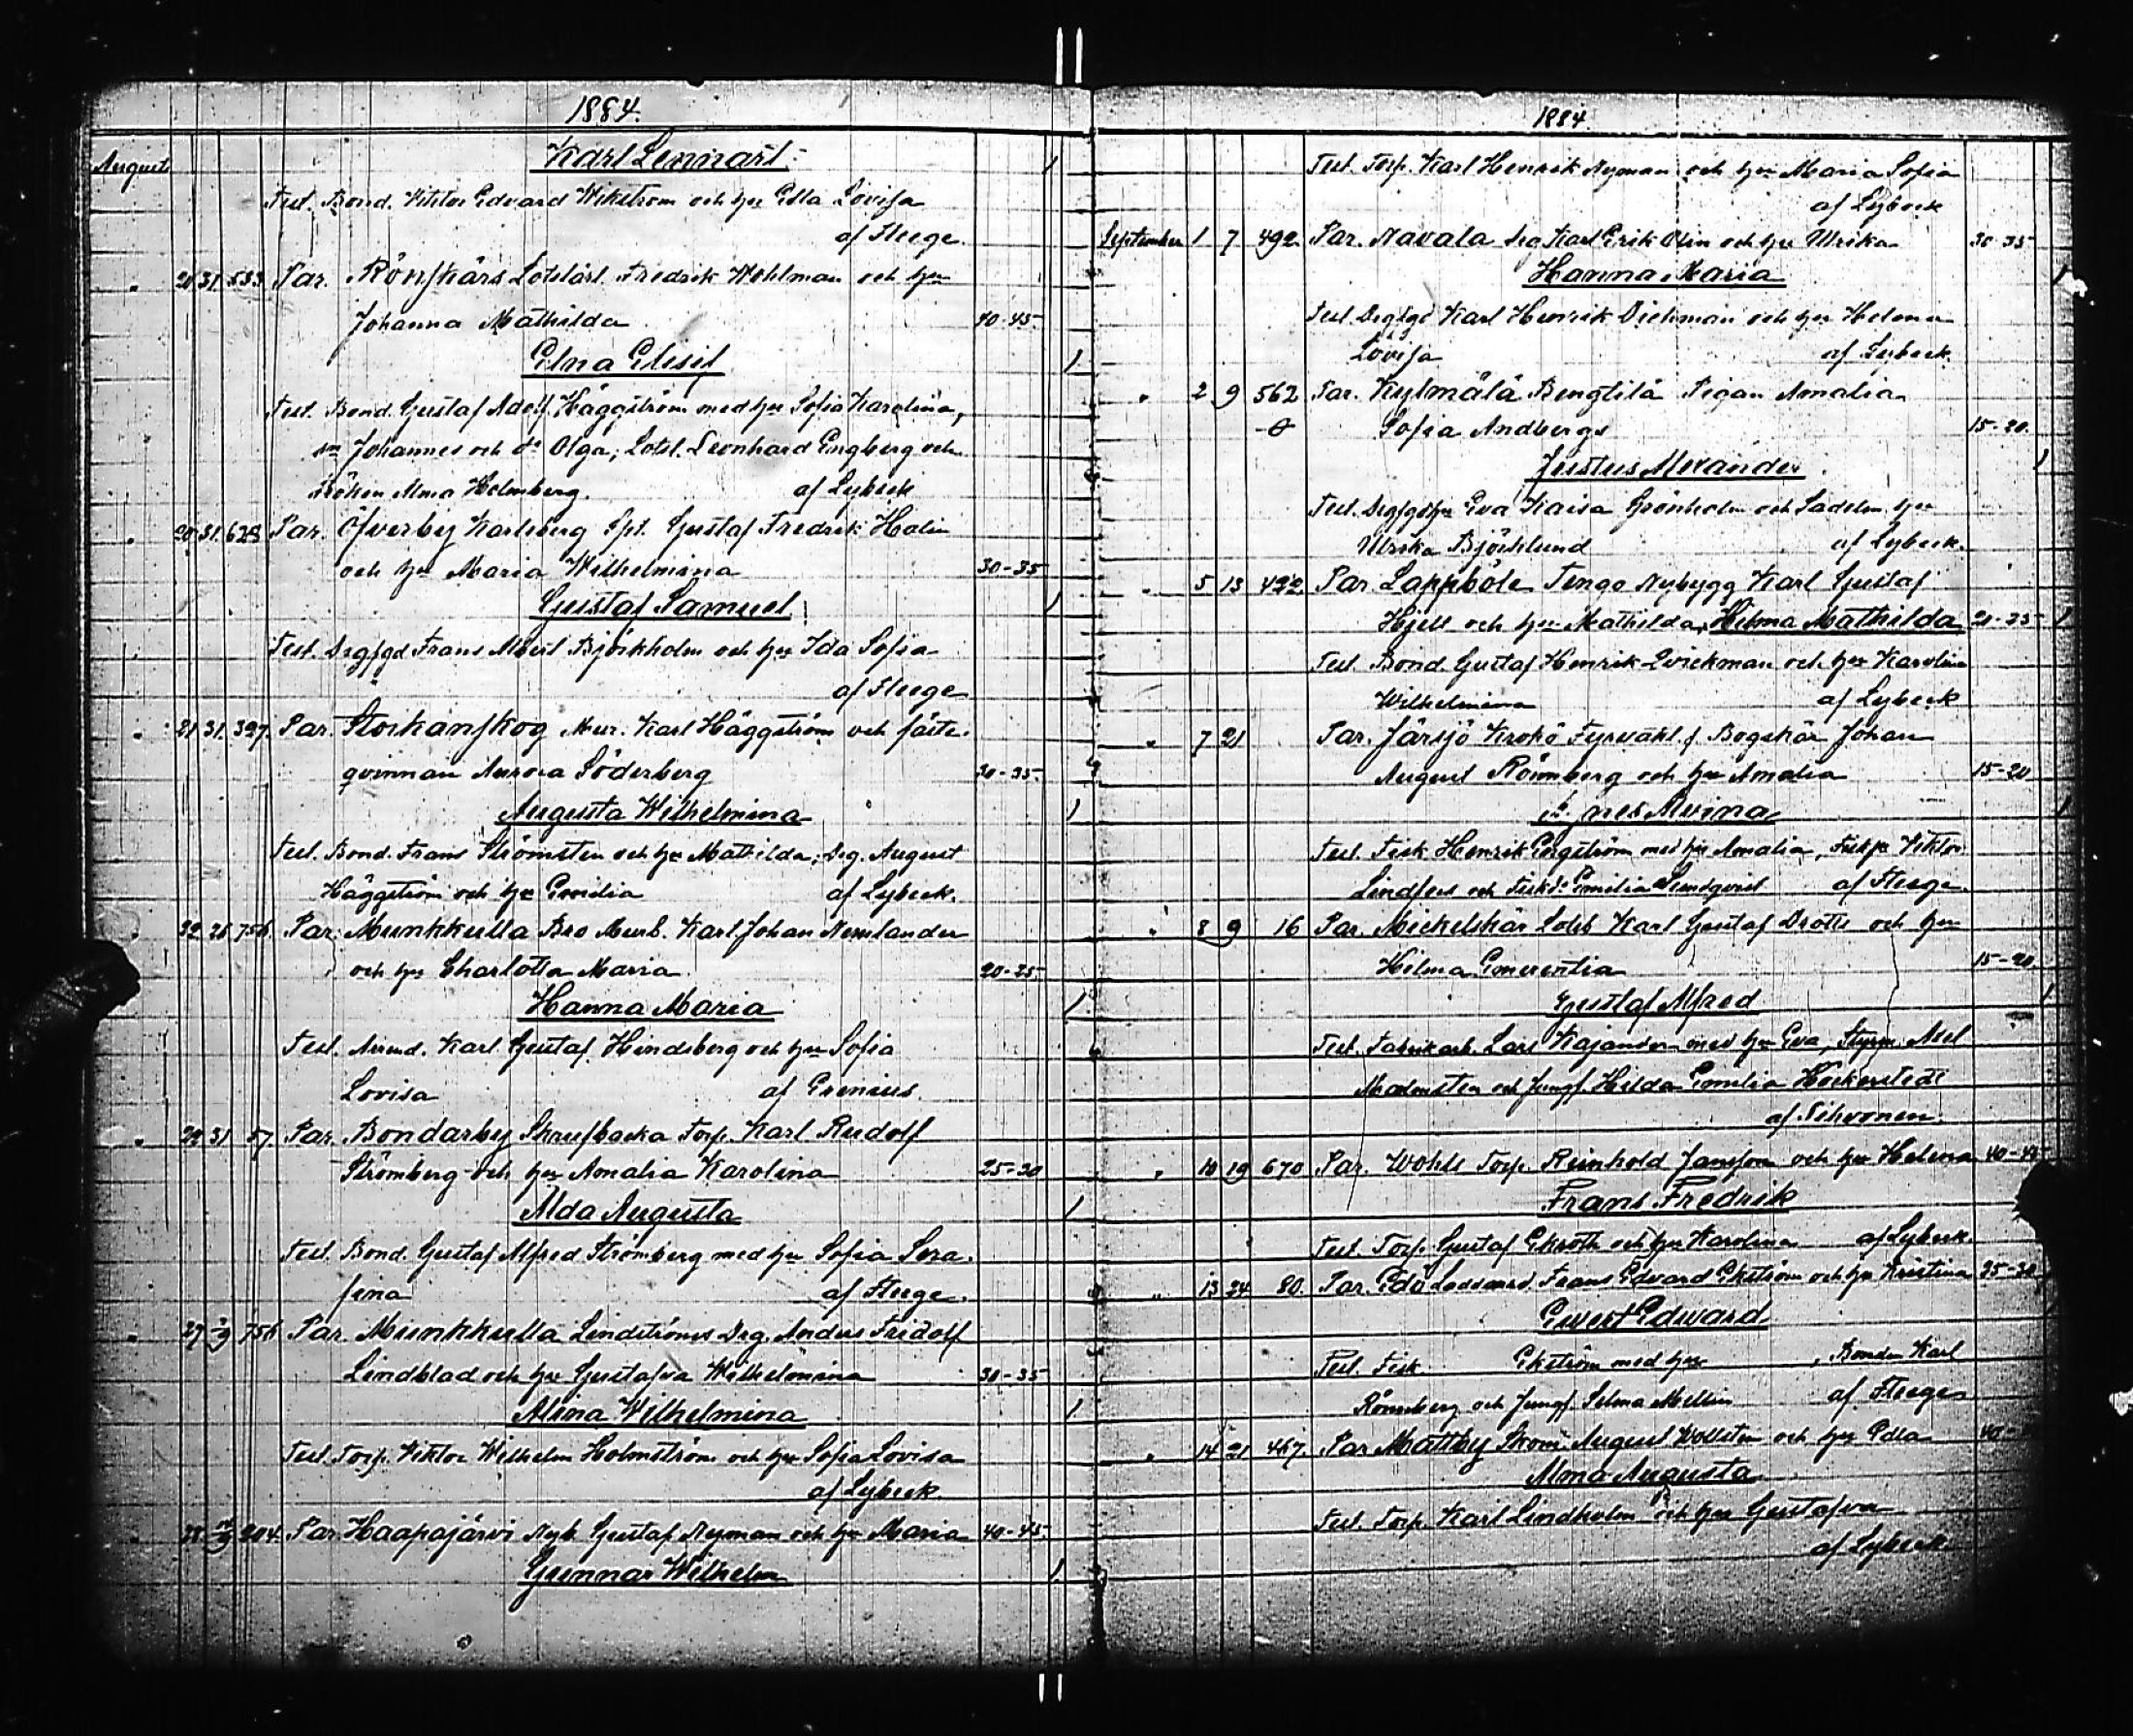 1884.
August
Karl Lennart
Test. Bond. Viktor Edvard Wikström och hu Edla Lovisa
af Fleege.
" 20 31 533 Par. Rönskärs Lotslärl. Fredrik Wohlman och hu
Johanna Mathilda 40-45
Elna Elisif
Test. Bond. Gustaf Adolf Häggström med hu Sofia Karolina,
sn Johannes och dr Olga; Lotsl. Leonhard Engberg och
fröken Alma Holmberg. af Lybeck
" 20 31 623 Par. Öfverby Karlsberg Spt. Gustaf Fredrik Holin
och hu Maria Wilhelmina 30-35
Gustaf Samuel
Test. Drgfgd Frans Albert Björkholm och hu Ida Sofia
af Fleege
" 21 31 397. Par. Storkanskog Mur. Karl Häggström och fäste-
qvinnan Aurora Söderberg 30-35
Augusta Wilhelmina
Test. Bond. Frans Strömsten och hu Mathilda; Drg. August
Häggström och hu Emilia af Lybeck.
22 26 756. Par. Munkkulla Bro Murb. Karl Johan Nemlander
och hu Charlotta Maria
Hanna Maria
Test. Arrend. Karl Gustaf Hindsberg och hu Sofia
Lovisa af Grenius
" 31 57. Par. Bondarby Skrufbacka Torp. Karl Rudolf
Strömberg och hu Amalia Karolina 25-30
Alda Augusta
Test. Bond. Gustaf Alfred Strömberg med hu Sofia Sera-
fina af Fleege.
" 27 756 Par. Munkkulla Lindströms Drg. Anders Fridolf
Lindblad och hu Gustafva Wilhelmina 30-35
Alina Wilhelmina
Test. Torp. Viktor Wilhelm Holmström och hu Sofia Lovisa
af Lybeck.
" 28 204. Par. Haapajärvi Nyb. Gustaf Nyman och hu Maria 40-45
Gunnar Wilhelm
1884
Test. Torp. Karl Henrik Nyman och hu Maria Sofia
af Lybeck
September 1 7 492. Par. Navala Drg Karl Erik Olin och hu Ulrika 30-35
Hanna Maria
Test. Drgfgd Karl Henrik Diekman och hu Helena
Lovisa af Lybeck.
" 2 9 562 Par. Kylmälä Bengtilä Pigan Amalia
Sofia Andbergs 15-20.
Justus Alexander
Test. Drgfgdhu Eva Kaisa Grönholm och Sadelm. hu
Ulrika Björklund af Lybeck.
" 5 13 422. Par. Lappböle Tengo Nybygg Karl Gustaf
Hjelt och hu Mathilda, Hilma Mathilda
Test. Bond. Gustaf Henrik Qvickman och hu Karolina
Wilhelmina af Lybeck
" 7 21 Par. Järsjö Krokö Fyrvakt. f. Bogskär Johan
August Rönnberg och hu Amalia 15-20
Agnes Alvina
Test. Fisk. Henrik Engström med hu Amalia, Viktor
Lindfors och Emilia Sundqvist af Fleege.
" 8 9 16 Par. Mickelskär Lotsb. Karl Gustaf Drotts och hu
Hilma Emerentia 15-20.
Gustaf Alfred
Test. Fabrikarb. Lars Kajander med hu Eva, Styrm. Axel
Malmsten och Jungf. Hilda Emilia Höckerstedt
af Sihvonen.
" 10 19 670 Par. Wohls Torp. Reinhold Jansson och hu Helena 40-45
Frans Fredrik
Test. Torp. Gustaf Ekroth och hu Karolina af Lybeck
" 13 24 80. Par. Edö Frans Edvard Ekström och hu Kristina
Evert Edward
Test. Fisk. Ekström med hu , Bonden Karl
Rönnberg och Jungf. Selma Mellin af Fleege
" 14 21 467. Par. Mattby August Wollsten och hu Edla
Alma Augusta
Test. Torp. Karl Lindholm och hu Gustafva
af Lybeck